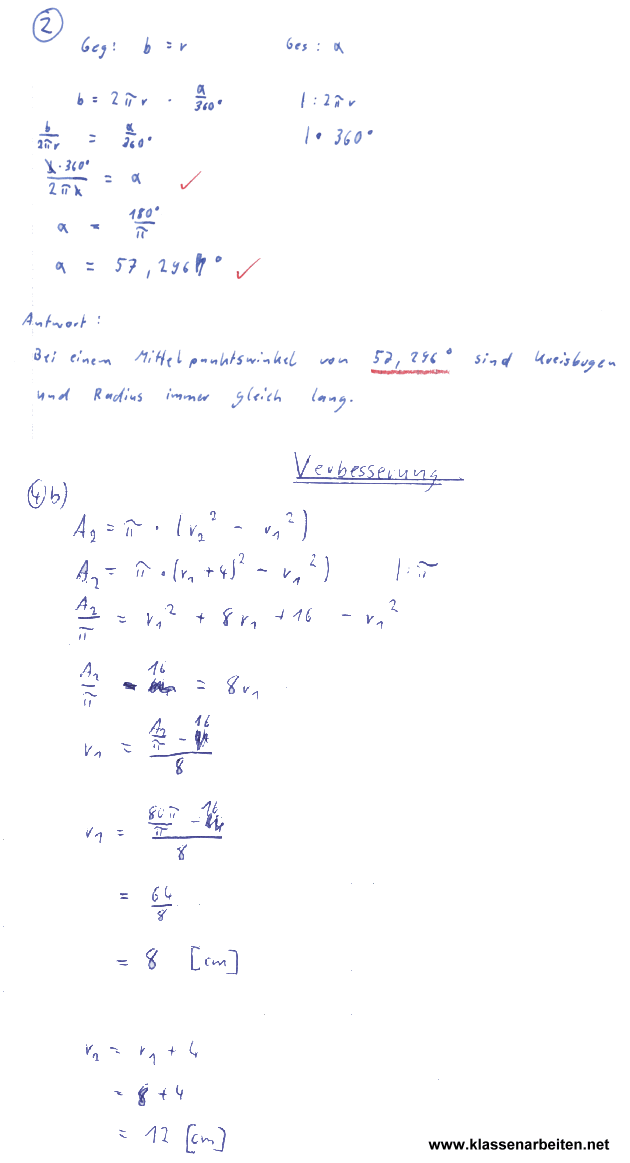 ②
Geg: b = r    Ges: α
b = 2πr · α/360°    | : 2πr
b/2πr = α/360°    | • 360°
b·360°/2πr = α ✓
α = 180°/π
α = 57,296° ✓
Antwort:
Bei einem Mittelpunktswinkel von 57,296° sind Kreisbogen
und Radius immer gleich lang.
Verbesserung
④b)
A₂ = π · (r₂² - r₁²)
A₂ = π · (r₁ + 4)² - r₁²)    | : π
A₂/π = r₁² + 8r₁ + 16 - r₁²
A₂/π - 16 = 8r₁
r₁ = (A₂/π - 16)/8
r₁ = (80π/π - 16)/8
= 64/8
= 8 [cm]
r₂ = r₁ + 4
= 8 + 4
= 12 [cm]
www.klassenarbeiten.net